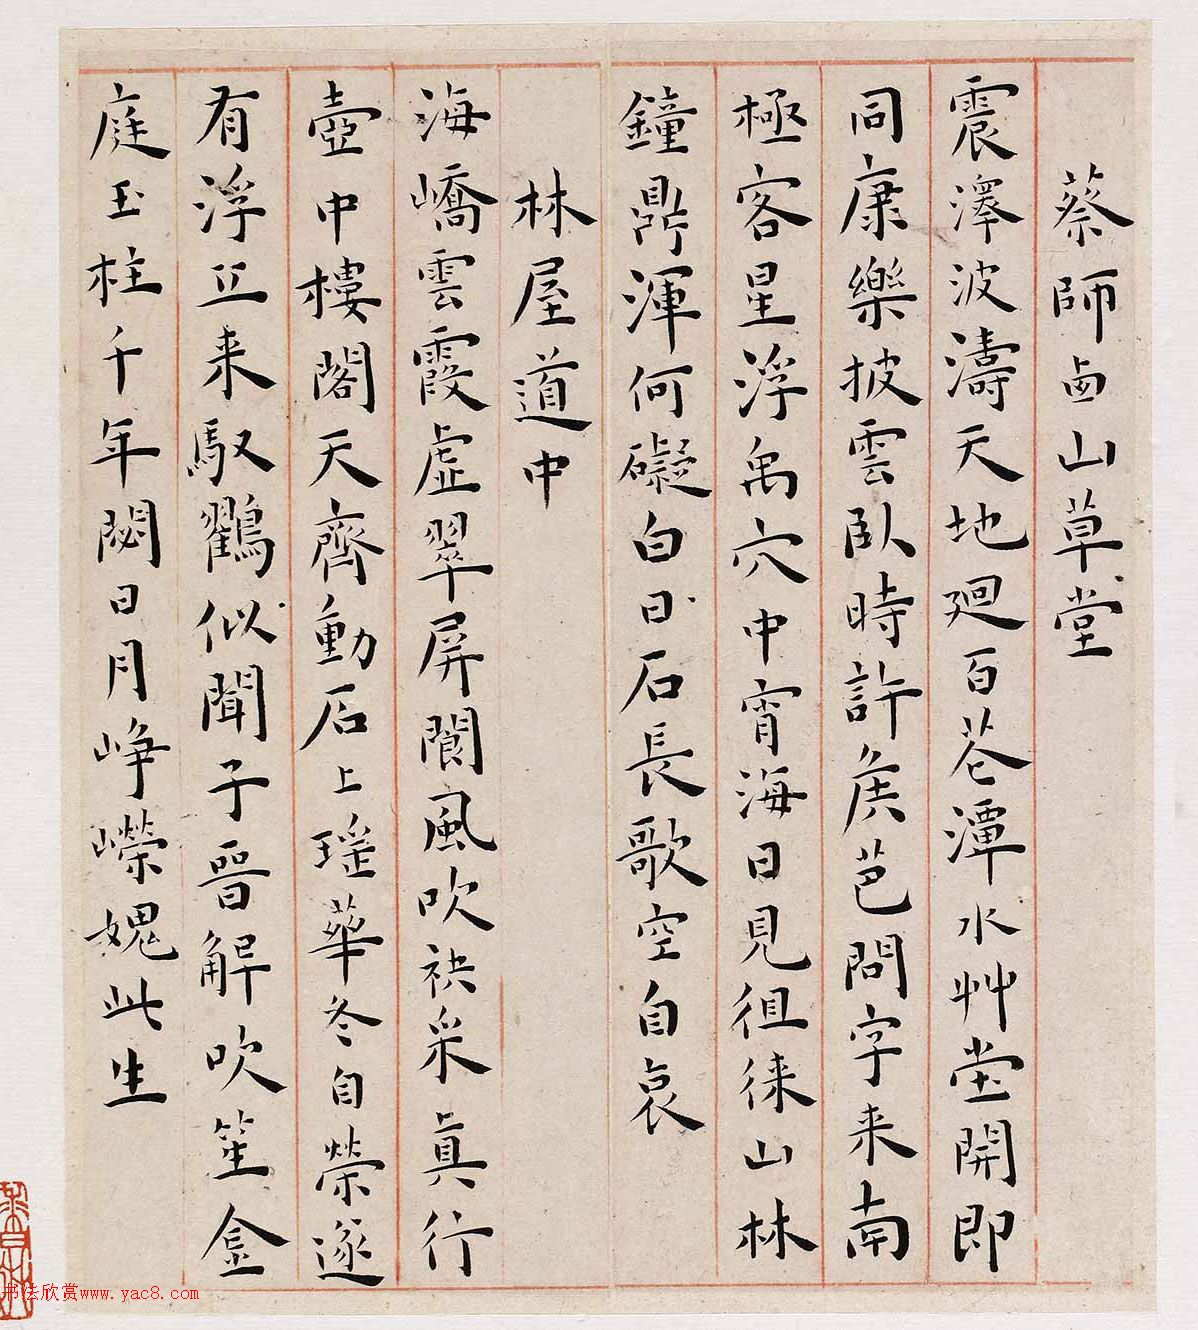 蔡師西山草堂
震澤波濤天地廻百花潭水艸堂開即
同康樂披雲臥時許矦芭問字来南
極客星浮禹穴中宵海日見徂徠山林
鐘鼎渾何礙白日石長歌空自哀
林屋道中
海嶠雲霞虛翠屏閬風吹袂采真行
壺中樓閣天齊動石上瑤華冬自榮遂
有浮丘来馭鶴似聞子晉解吹笙金
庭玉柱千年閟日月崢嶸媿此生
书法欣赏www.yac8.com